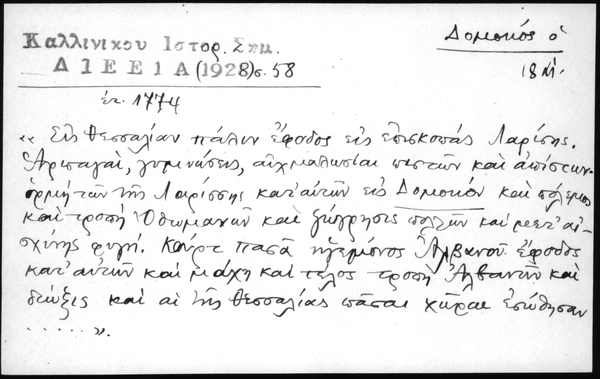 Καλλινικου Ιστορ. Σημ.
Δομοκός ὁ
Δ Ι Ε Ε 1 Α (1928) σ. 58
18 Μ.
ἐτ. 1774
« Εἰς Θεσσαλίαν πάλιν ἔφοδος εἰς ἐπισκοπάς Λαρίσης.
Ἁρπαγαί, γυμνώσεις, αἰχμαλωσίαι πιστῶν καὶ ἀπίστων.
ὁρμὴ τῶν τῆς Λαρίσσης κατ' αὐτῶν εἰς Δομοκόν καὶ πόλεμος
καὶ τροπή Ὀθωμανῶν καὶ ζώγρησις πολλῶν καὶ μετ' αἰ-
σχύνης φυγή. Κούρτ πασᾶ ἡγεμόνος Ἀλβανοῦ ἔφοδος
κατ' αὐτῶν καὶ μάχη καὶ τέλος τροπή Ἀλβανῶν καὶ
δίωξις καὶ αἱ τῆς Θεσσαλίας πᾶσαι χῶραι ἐσώθησαν
. . . . . . ».